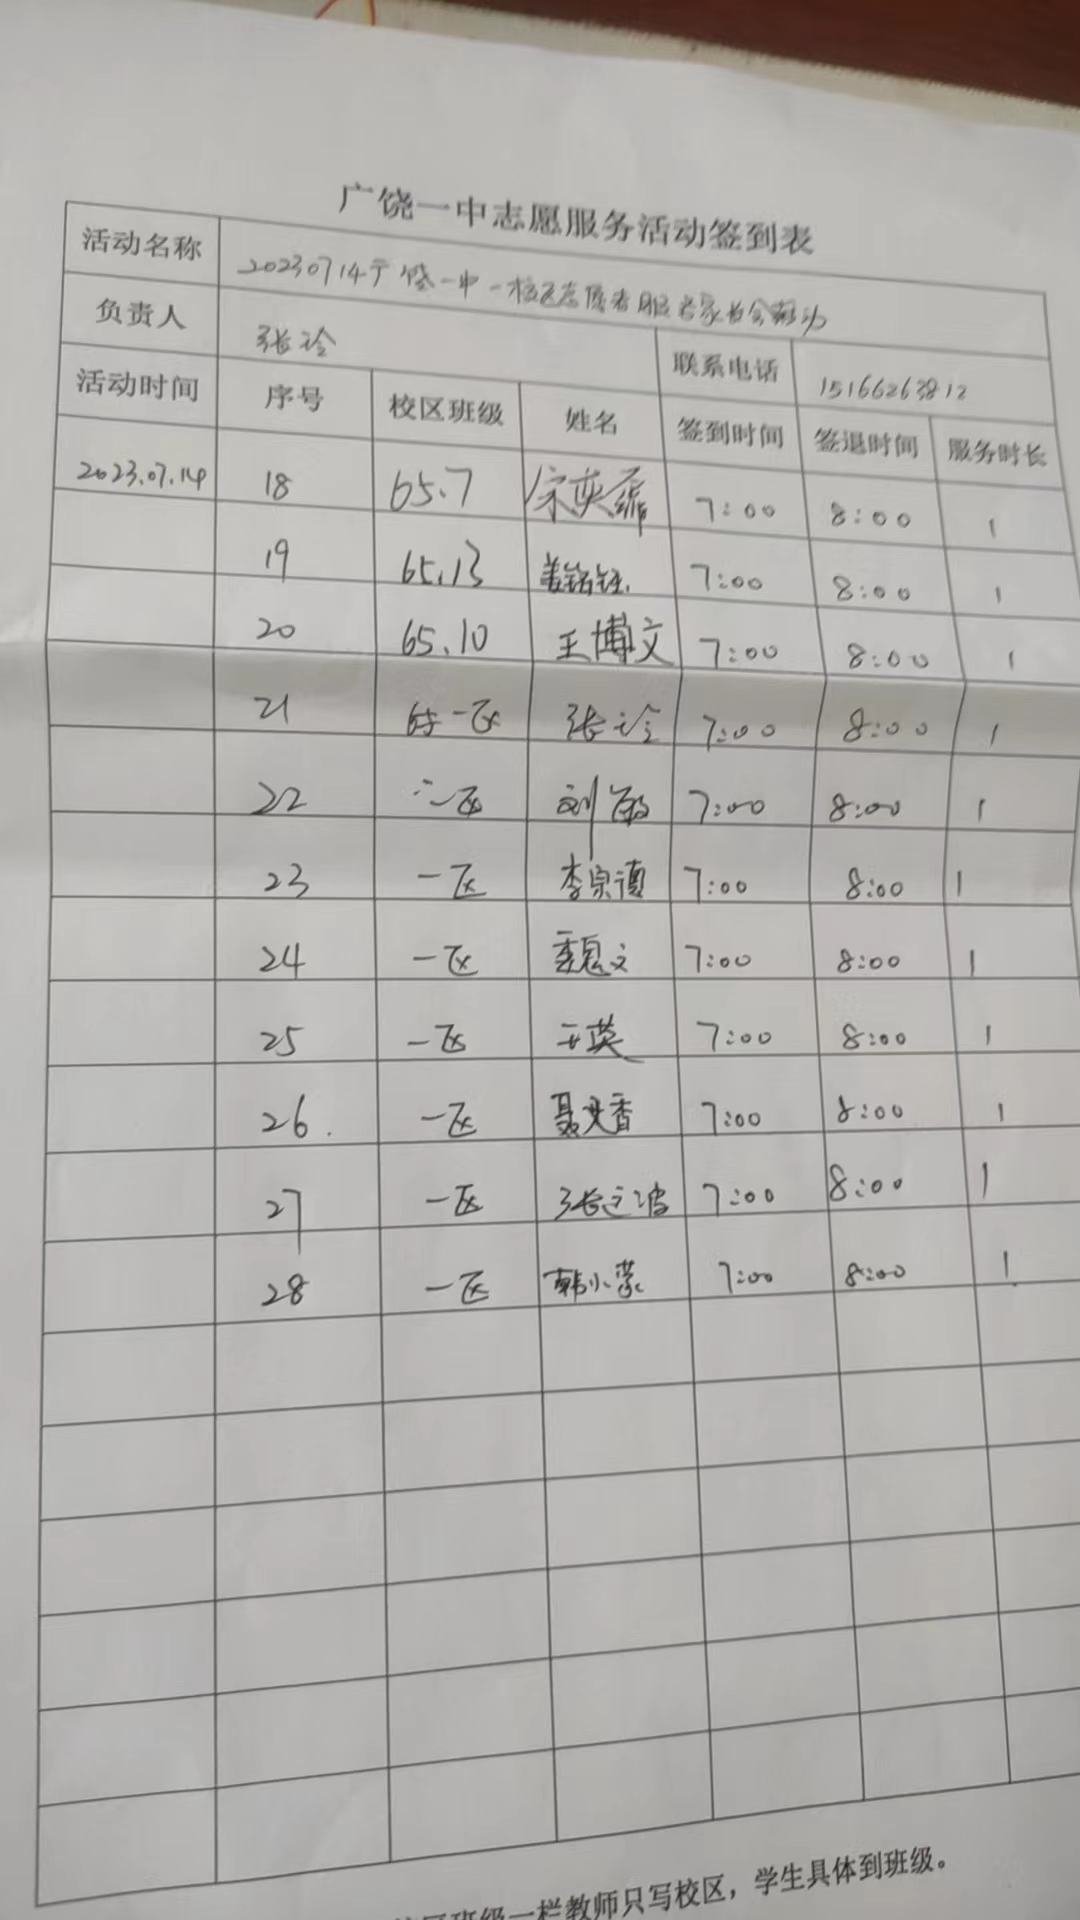 广饶一中志愿服务活动签到表
活动名称 20230714广饶一中一校区志愿者服务家长会活动
负责人 张玲 联系电话 15166263812
活动时间 序号 校区班级 姓名 签到时间 签退时间 服务时长
2023.07.14 18 65.7 宋奕 7:00 8:00 1
19 65.13 姜铭钰 7:00 8:00 1
20 65.10 王博文 7:00 8:00 1
21 一区 张玲 7:00 8:00 1
22 一区 刘敏 7:00 8:00 1
23 一区 李宗德 7:00 8:00 1
24 一区 魏文 7:00 8:00 1
25 一区 王英 7:00 8:00 1
26. 一区 聂香 7:00 8:00 1
27 一区 张波 7:00 8:00 1
28 一区 韩小蒙 7:00 8:00 1
区班级一栏教师只写校区，学生具体到班级。